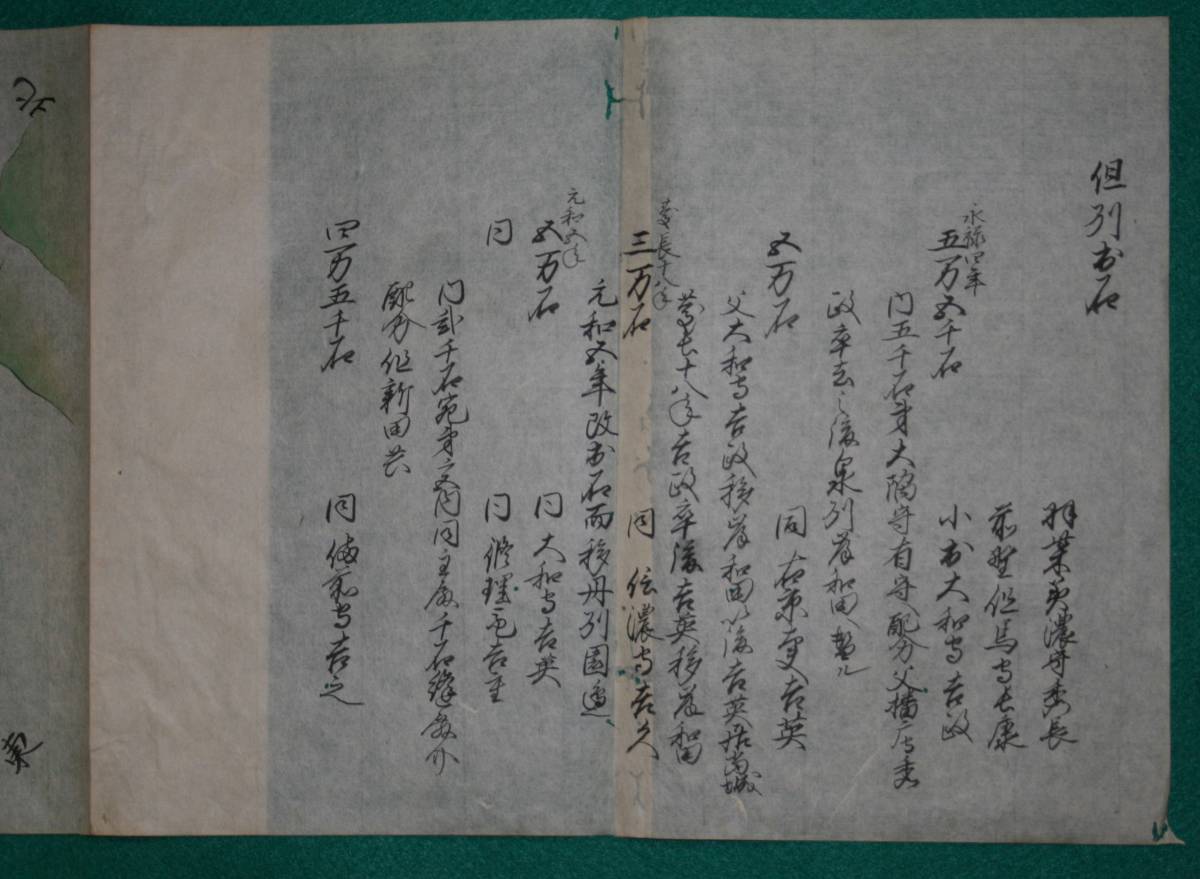 但列出石
羽柴美濃守秀長
前野但馬守長康
永禄四年
五万五千石 小出大和守吉政
内五千石弟大隅守有守配分父播磨守秀
政卒去之後泉列岸和田
五万石 同右京亮吉英
父大和守吉政移岸和田以後吉英居当城
慶長十八年吉政卒後吉英移岸和田
慶長十八年
三万石 同信濃守吉久
元和五年改出石而移丹列園邊
元和五年
五万石 同大和守吉英
同 同修理亮吉重
内弐千石宛弟
同主殿千石
配分但新田共
四万五千石 同備前守吉之